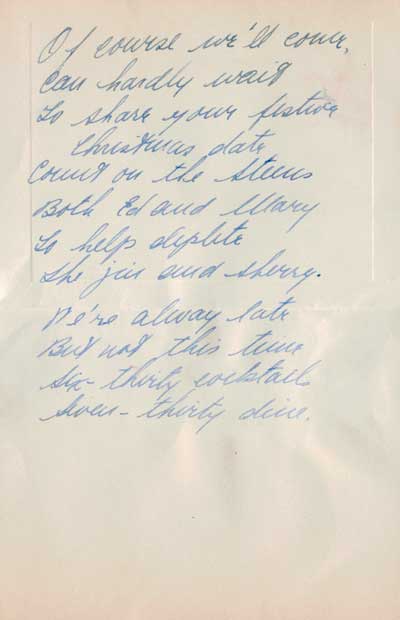 Of course we'll come,
Can hardly wait
to share your festive
Christmas date
Count on the Steens
Both Ed and Mary
to help deplete
the jin and sherry.
We're alway late
But not this time
six-thirty cocktails
seven-thirty dine.